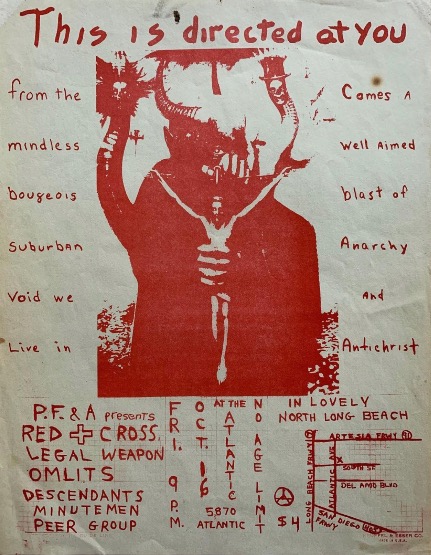 This is directed at you
from the
mindless
bougeois
suburban
Void we
Live in
Comes A
Well Aimed
blast of
Anarchy
And
Antichrist
P.F. & A presents
RED CROSS
LEGAL WEAPON
OMLITS
DESCENDANTS
MINUTEMEN
PEER GROUP
FRI.
OCT. 16
9 P.M.
AT THE
ATLANTIC
5870
ATLANTIC
NO AGE LIMIT
$4
IN LOVELY
NORTH LONG BEACH
ARTESIA FRWY 91
LONG BEACH FRWY
ATLANTIC AVE
X
SOUTH ST.
DEL AMO BLVD
SAN DIEGO
FRWY
ESSER CO.